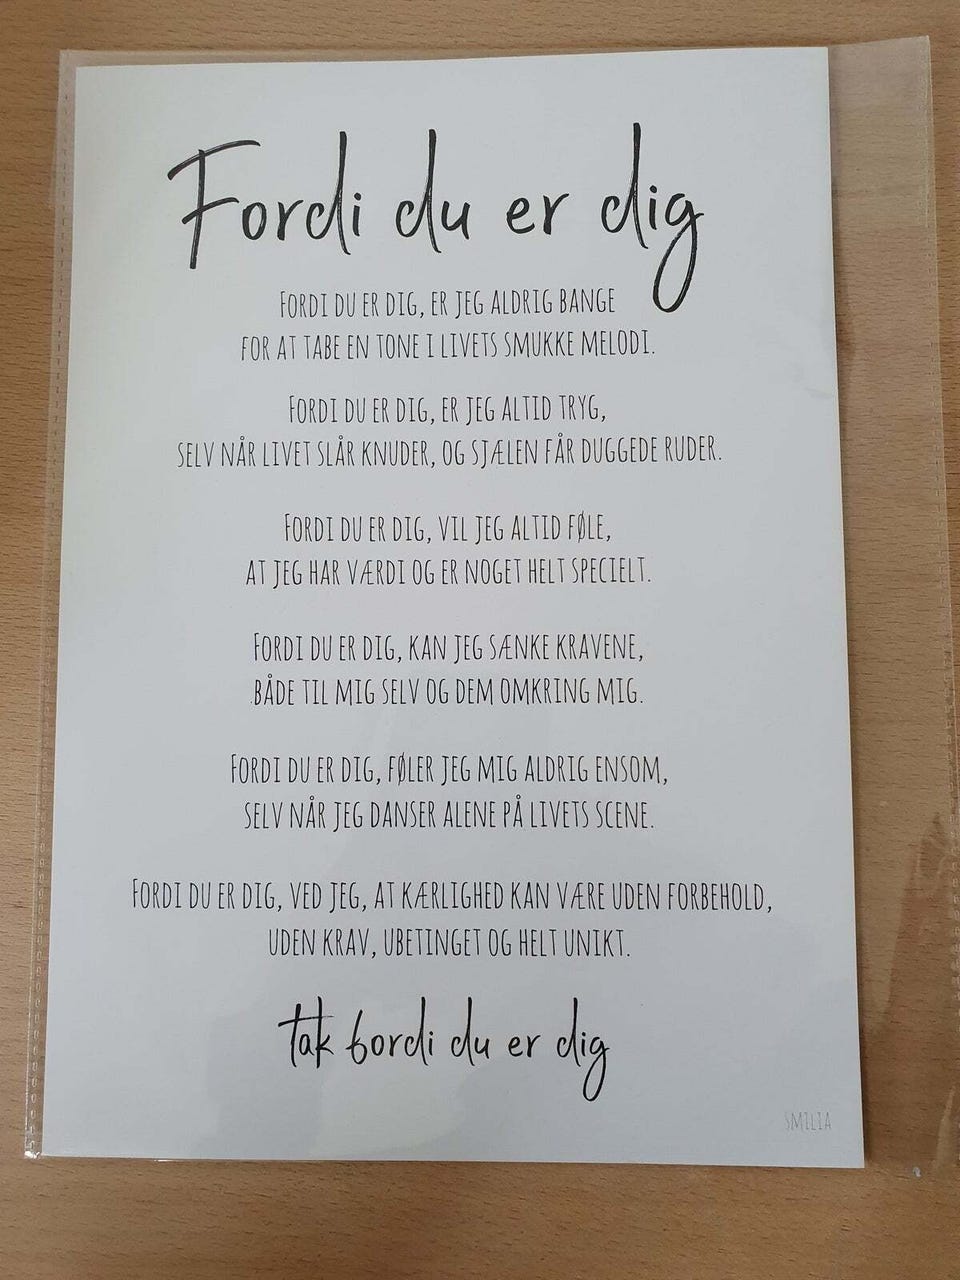 Fordi du er dig
FORDI DU ER DIG, ER JEG ALDRIG BANGE
FOR AT TABE EN TONE I LIVETS SMUKKE MELODI.
FORDI DU ER DIG, ER JEG ALTID TRYG,
SELV NÅR LIVET SLÅR KNUDER, OG SJÆLEN FÅR DUGGEDE RUDER.
FORDI DU ER DIG, VIL JEG ALTID FØLE,
AT JEG HAR VÆRDI OG ER NOGET HELT SPECIELT.
FORDI DU ER DIG, KAN JEG SÆNKE KRAVENE,
BÅDE TIL MIG SELV OG DEM OMKRING MIG.
FORDI DU ER DIG, FØLER JEG MIG ALDRIG ENSOM,
SELV NÅR JEG DANSER ALENE PÅ LIVETS SCENE.
FORDI DU ER DIG, VED JEG, AT KÆRLIGHED KAN VÆRE UDEN FORBEHOLD,
UDEN KRAV, UBETINGET OG HELT UNIKT.
tak fordi du er dig
SMILIA